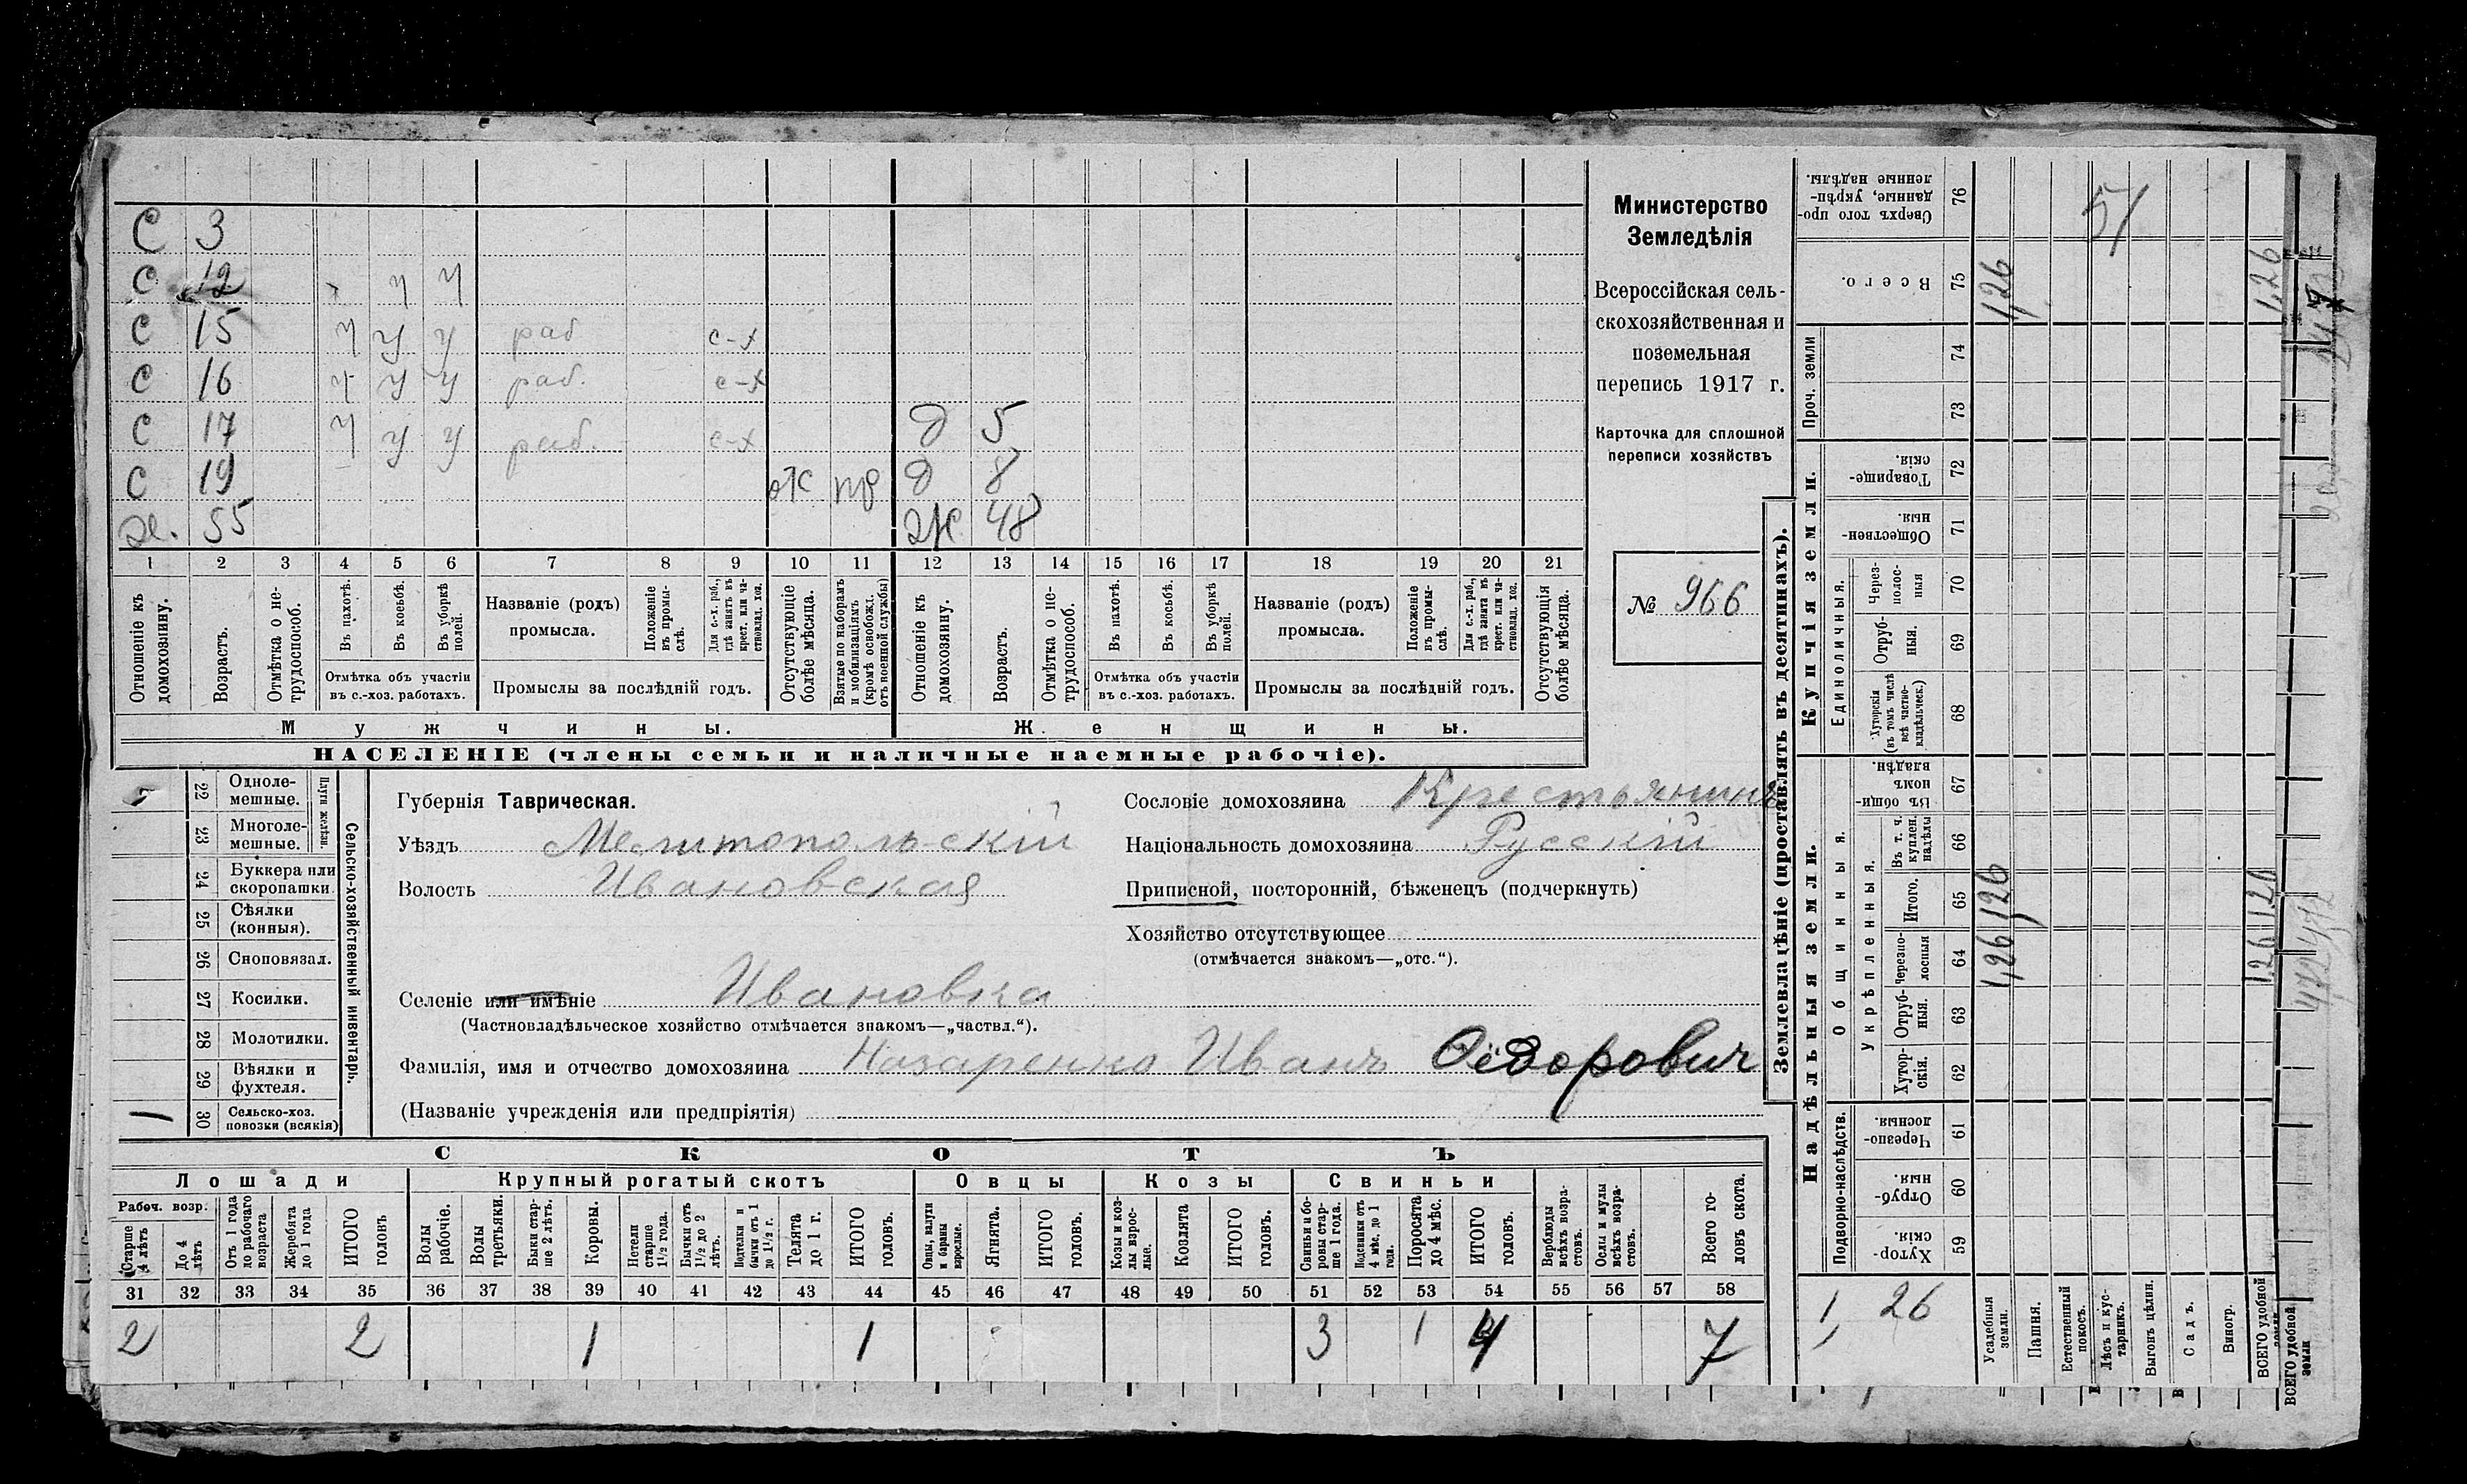 С 3
С 12 ч ч ч
С 15 ч у у раб с-х
С 16 ч у у раб. с-х
С 17 ч у у раб. с-х д 5
С 19 ож пр д 8
х. 55 ж 48
1 2 3 4 5 6 7 8 9 10 11 12 13 14 15 16 17 18 19 20 21
Отношеніе къ домохозяину.
Возрастъ.
Отмѣтка о нетрудоспособ.
Въ пахотѣ.
Въ косьбѣ.
Въ уборкѣ полей.
Отмѣтка объ участіи въ с.-хоз. работахъ.
Названіе (родъ) промысла.
Положеніе въ промыслѣ.
Для с.-х. раб., гдѣ занятъ въ крест. или частновлад. хоз.
Промыслы за послѣдній годъ.
Отсутствующіе болѣе мѣсяца.
Взятые по наборамъ и мобилизаціямъ (кромѣ освобожд. отъ военной службы)
Отношеніе къ домохозяину.
Возрастъ.
Отмѣтка о нетрудоспособ.
Въ пахотѣ.
Въ косьбѣ.
Въ уборкѣ полей.
Отмѣтка объ участіи въ с.-хоз. работахъ.
Названіе (родъ) промысла.
Положеніе въ промыслѣ.
Для с.-х. раб., гдѣ занята въ крест. или частновлад. хоз.
Промыслы за послѣдній годъ.
Отсутствующія болѣе мѣсяца.
Мужчины. Женщины.
НАСЕЛЕНІЕ (члены семьи и наличные наемные рабочіе).
Министерство
Земледѣлія
Всероссійская сель-
скохозяйственная и
поземельная
перепись 1917 г.
Карточка для сплошной
переписи хозяйствъ
№ 966
22 Однолемешные.
23 Многолемешные.
Плуги желѣзн.
24 Буккера или скоропашки
25 Сѣялки (конныя).
26 Сноповязал.
27 Косилки.
28 Молотилки.
29 Вѣялки и фухтеля.
30 Сельско-хоз. повозки (всякія) 1
Сельско-хозяйственный инвентарь.
Губернія Таврическая.
Уѣздъ Мелитопольскій
Волость Ивановская
Селеніе или имѣніе Ивановка
(Частновладѣльческое хозяйство отмѣчается знакомъ—„частвл.“).
Фамилія, имя и отчество домохозяина Назаренко Иванъ Ѳедорович
(Названіе учрежденія или предпріятія)
Сословіе домохозяина Крестьянинъ
Національность домохозяина Русскій
Приписной, посторонній, бѣженецъ (подчеркнуть)
Хозяйство отсутствующее
(отмѣчается знакомъ—„отс.“).
СКОТЪ
Лошади Крупный рогатый скотъ Овцы Козы Свиньи
Рабоч. возр.
Старше 4 лѣтъ
До 4 лѣтъ
Отъ 1 года до рабочаго возраста
Жеребята до 1 года
ИТОГО головъ
Волы рабочіе.
Волы третьяки.
Быки старше 2 лѣтъ.
Коровы.
Нетели старше 1½ года.
Бычки отъ 1½ до 2 лѣтъ.
Подтелки и бычки отъ 1 до 1½ г.
Телята до 1 г.
ИТОГО головъ.
Овцы, валухи и бараны взрослые.
Ягнята.
ИТОГО головъ.
Козы и козлы взрослые.
Козлята
ИТОГО головъ.
Свиньи и боровы старше 1 года.
Подсвинки отъ 4 мѣс. до 1 года.
Поросята до 4 мѣс.
ИТОГО головъ.
Верблюды всѣхъ возрастовъ.
Ослы и мулы всѣхъ возрастовъ.
Всего головъ скота.
31 32 33 34 35 36 37 38 39 40 41 42 43 44 45 46 47 48 49 50 51 52 53 54 55 56 57 58
2 2 1 1 3 1 4 7
Землевладѣніе (проставлять въ десятинахъ).
Купчія земли.
Надѣльныя земли.
Сверхъ того проданные, укрѣпленные надѣлы. 76
51
Всего. 75 1,26 1,26
Проч. земли 74 73
Товарищескія. 72
Общественныя. 71
Единоличныя.
Черезполосныя 70
Отрубныя. 69
Хуторскія (въ томъ числѣ всѣ частновладѣльческ.) 68
Въ общинномъ владѣн. 67
Общинныя.
Укрѣпленныя.
Въ т. ч. куплен. надѣлы 66
Итого. 65 1,26 1,26
Черезполосныя 64 1,26 1,26
Отрубныя. 63
Хуторскія. 62
Подворно-наслѣдств.
Черезполосныя. 61
Отрубныя. 60
Хуторскія. 59
1, 26
Усадебныя земли.
Пашня.
Естественный покосъ.
Лѣсъ и кустарникъ.
Выгонъ цѣлин.
Садъ.
Виногр.
ВСЕГО удобной
ВСЕГО удобной земли